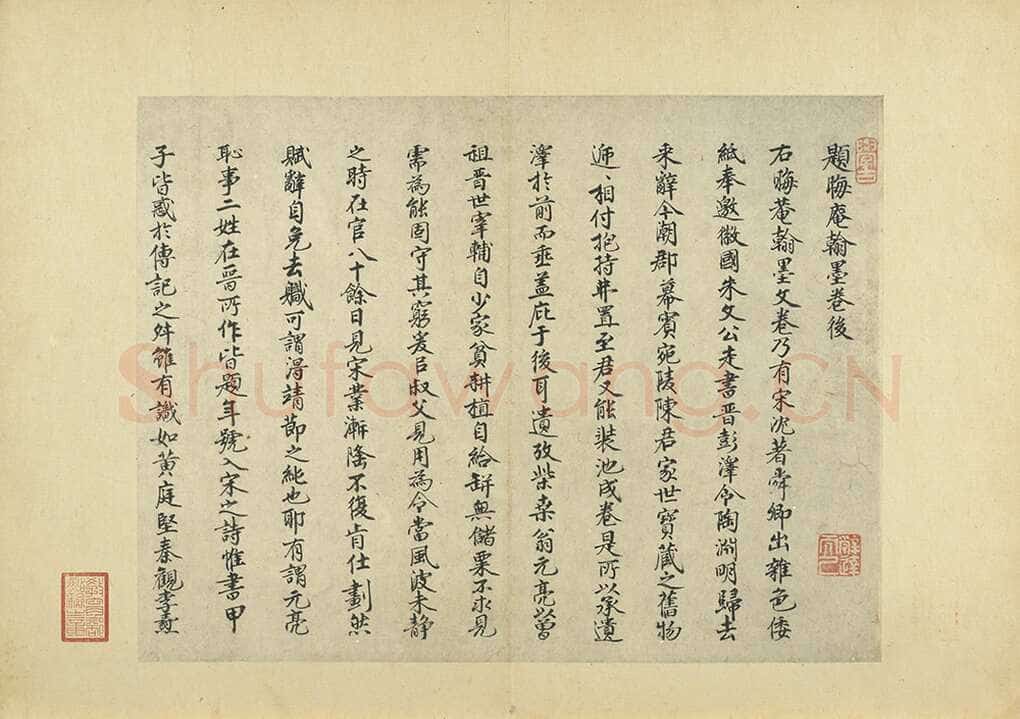 題晦庵翰墨卷後
右晦菴翰墨文卷乃有宋沈著舜卿出雜色倭
紙奉邀徽國朱文公走書晉彭澤令陶淵明歸去
来辭今潮郡幕賓宛陵陳君家世寶藏之舊物
逓〻相付抱持並置至君又能裝池成卷是所以承遺
澤於前而垂蓋庇于後耳遺攷柴桒翁元亮以曾
祖晋世宰輔自少家貧耕植自給缾無儲粟不求見
需為能固守其窮爰㠯叔父見用為令當風波未静
之時在官八十餘日見宋業漸隆不復肯仕劃然
賦辭自免去職可謂得靖節之純也耶有謂元亮
恥事二姓在晋所作皆題年號入宋之詩惟書甲
子皆惑於傳記之舛雖有識如黄庭堅秦觀李燾
Shufawang.CN